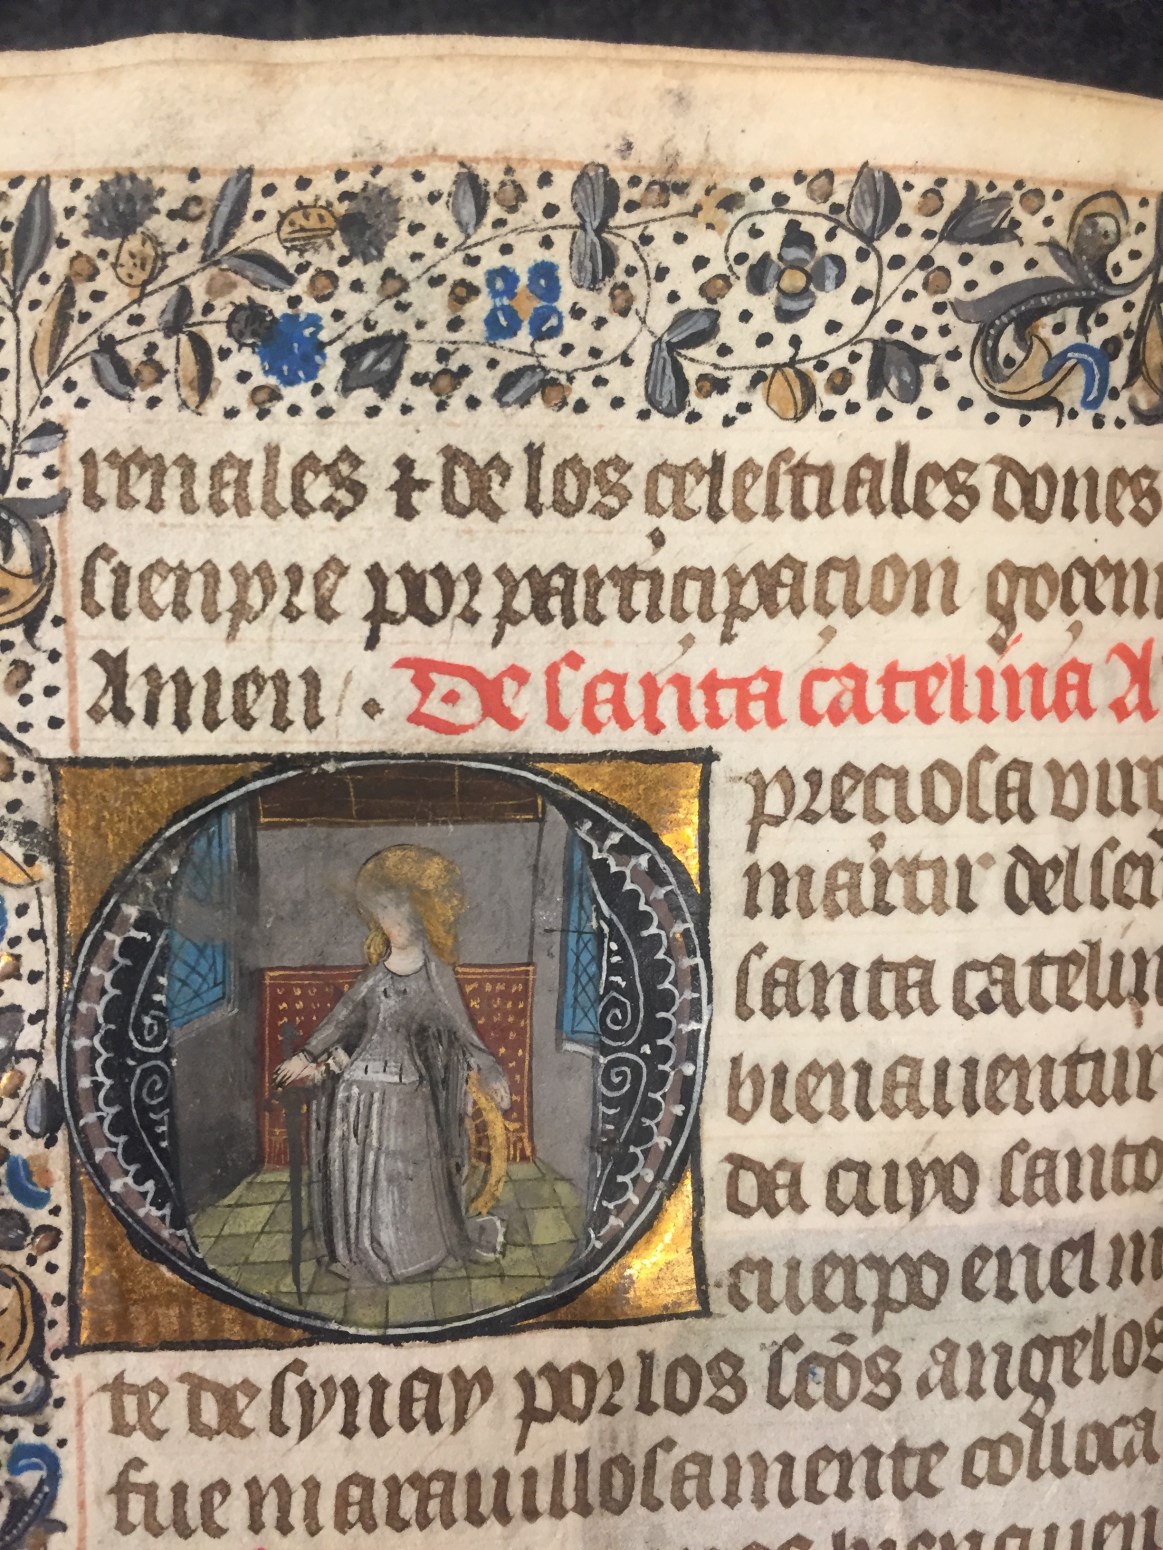 renales ⁊ de los çelestiales dones
sienpre por participaçion goçem
Amen . De santa catelina A
O preciosa virg
martir del señ
santa catelin
bienauentur
da cuyo santo
cuerpo en el m
te de synay por los scõs angelos
fue marauillosamente colloca